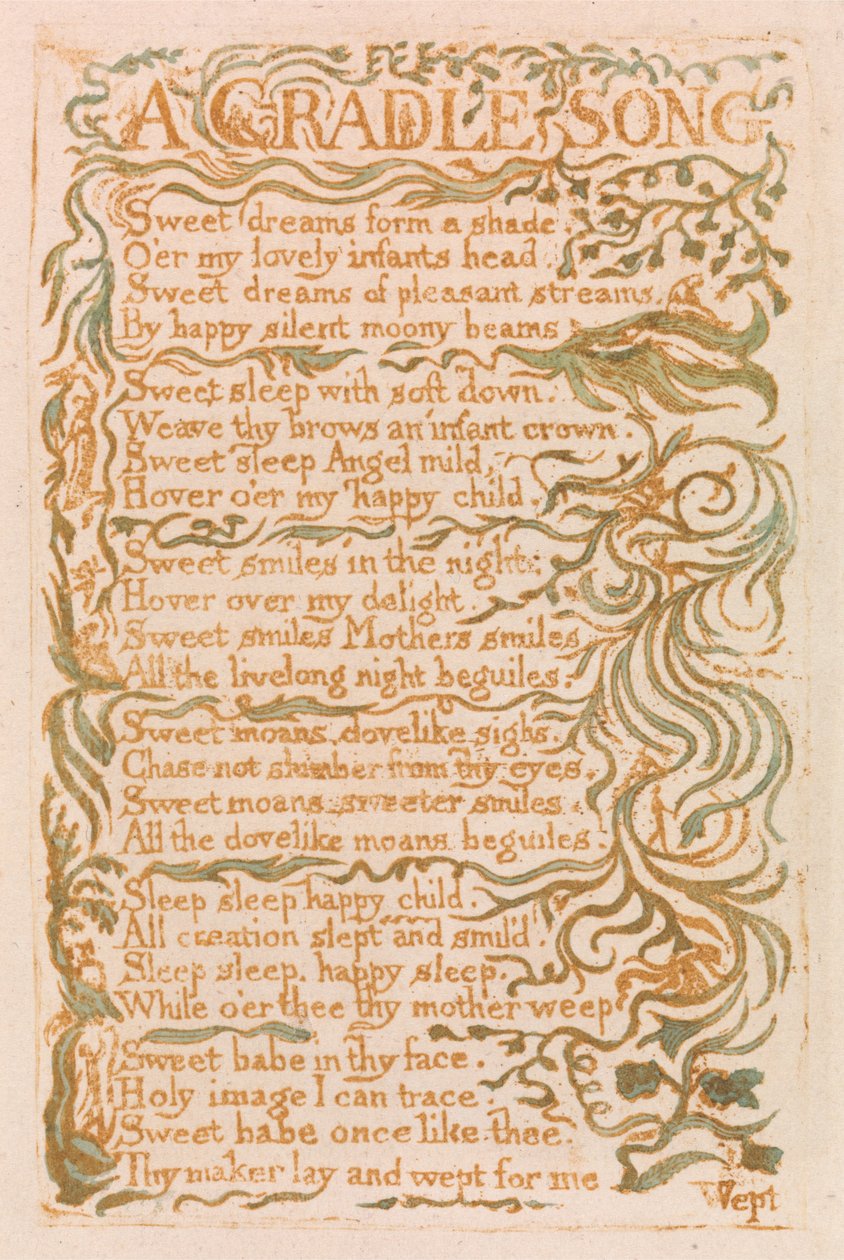 A CRADLE SONG
Sweet dreams form a shade.
O'er my lovely infants head.
Sweet dreams of pleasant streams.
By happy silent moony beams
Sweet sleep with soft down.
Weave thy brows an infant crown.
Sweet sleep Angel mild,
Hover o'er my happy child.
Sweet smiles in the night;
Hover over my delight.
Sweet smiles Mothers smiles
All the livelong night beguiles.
Sweet moans, dovelike sighs.
Chase not slumber from thy eyes.
Sweet moans, sweeter smiles
All the dovelike moans beguiles.
Sleep sleep happy child.
All creation slept and smil'd.
Sleep sleep, happy sleep.
While o'er thee thy mother weep
Sweet babe in thy face.
Holy image I can trace.
Sweet babe once like thee.
Thy maker lay and wept for me
Wept